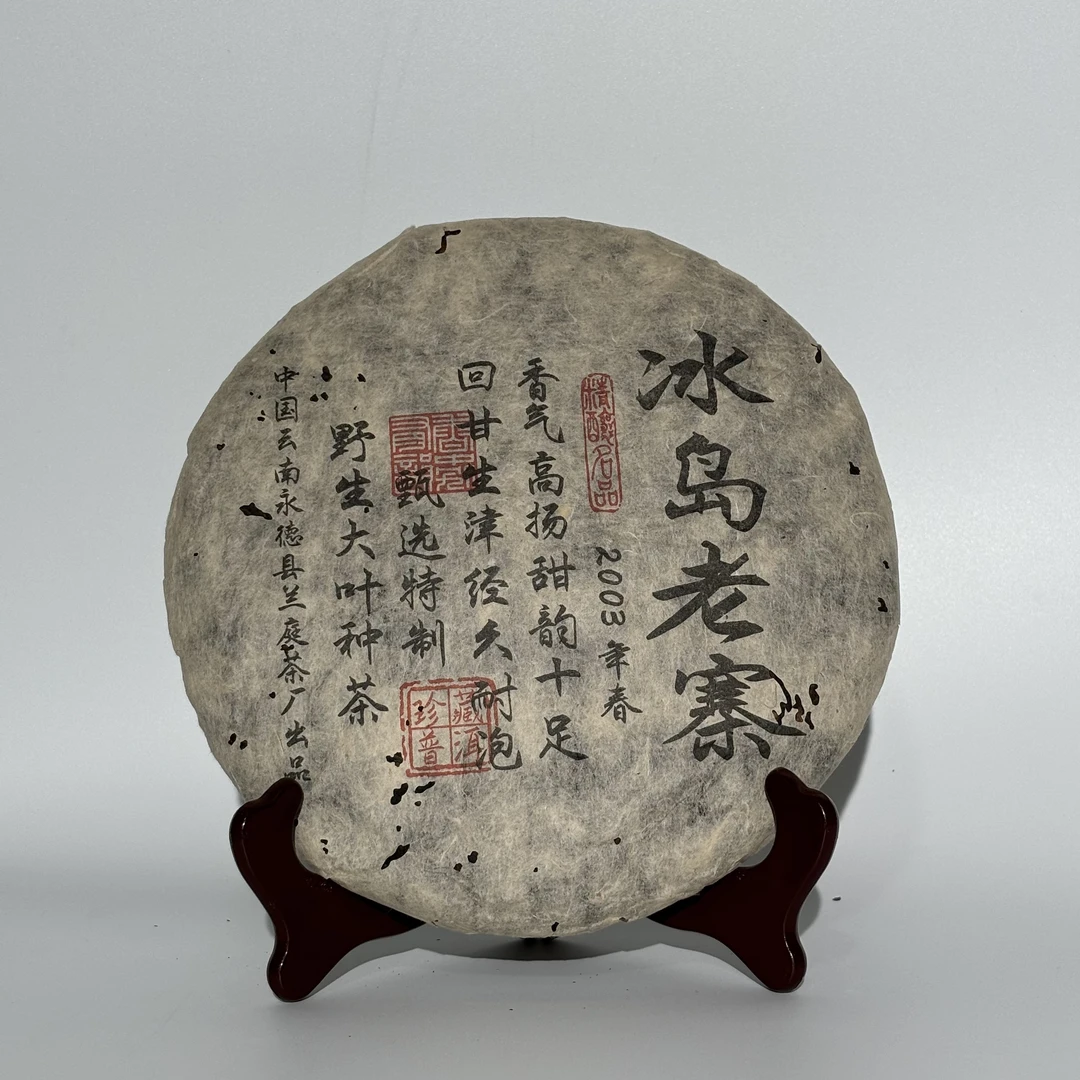 冰岛老寨
精酿名品
2003年春
香气高扬甜韵十足
回甘生津经久耐泡
甄选特制
藏洱
珍普
野生大叶种茶
中国云南永德县兰庭茶厂出品